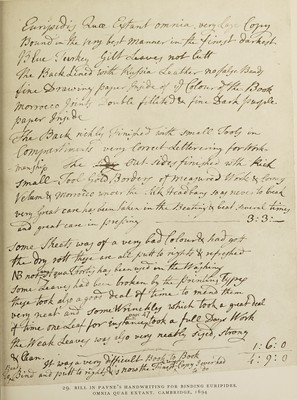 Euripidis Quae Extant omnia, very large Copy
Bound in the very best manner in the finest darkest
Blue Turkey Gilt Leaves not Cutt
The Back Lined with Russia Leather no false Bands
fine Drawing paper Inside of ye Colour of the Book
morrocco Joints Double filleted & fine Dark purple
paper Inside
The Back richly Finished with small Tools in
Compartments very Correct Lettering for work-
manship The Out Sides finished with thick
small Tool Gold Borders of measured Work &
Velum & Morrocco under the Silk Headbans may never be weak
very Great care has been taken in the Beating & beat several times
and great care in pressing 3:3:–
Some sheets was of a very bad Colour & had got
the dry rott these are all putt to rights & refreshed
NB has been used in the Washing
some Leaves had been broken by the Printing Types
these took also a good deal of time to mend them
very neat and some Wrinkles which took a great deal
of time one Leaf for Instance took a full Days Work
the Weak Leaves was also very neatly sized, strong
& Clean 1:6:0
It was a very difficult Book to
Bind and putt to rights & is now the Finest Copy 4:9:0
29. BILL IN PAYNE'S HANDWRITING FOR BINDING EURIPIDES.
OMNIA QUAE EXTANT. CAMBRIDGE, 1694